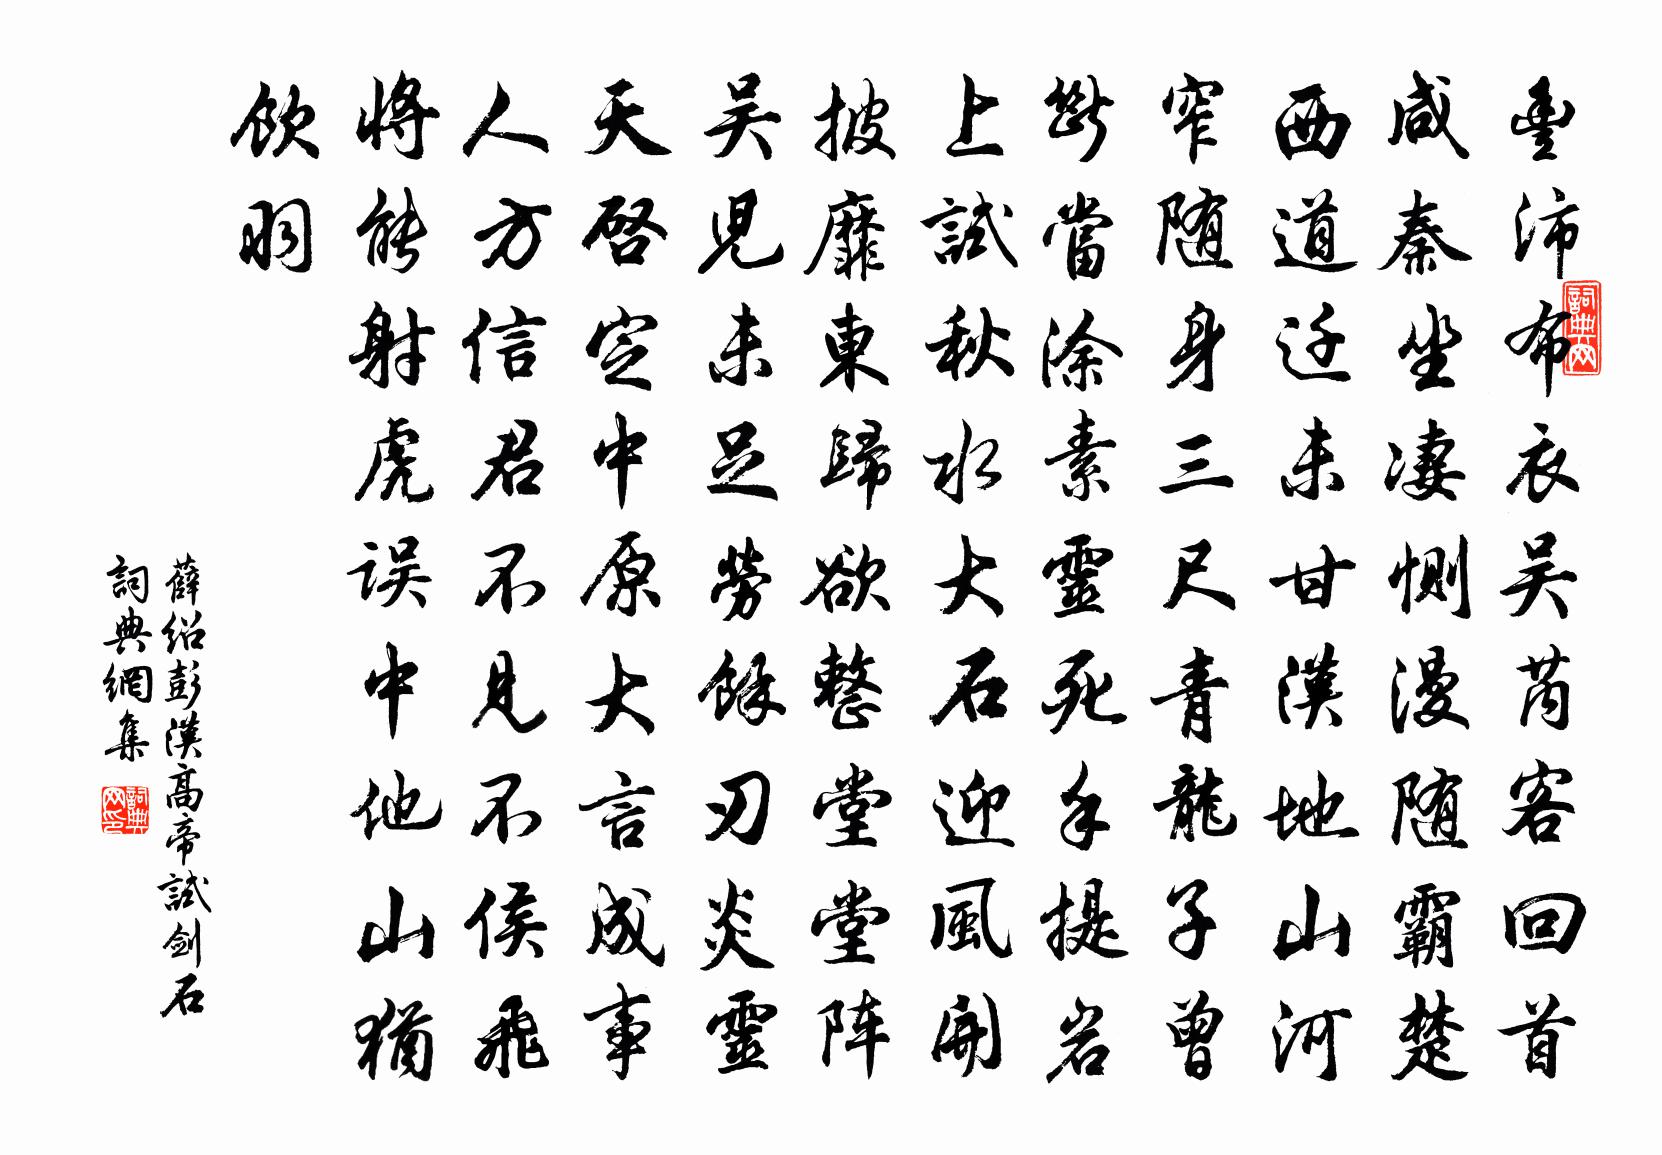 豊沛布衣吴芮客回首
咸秦坐凄恻漫随霸楚
西道迁未甘漢地山河
窄随身三尺青龍子曾
断當涂素靈死手提岩
上試秋水大石迎風開
披靡東歸欲整堂堂阵
吴児未足勞餘刃炎靈
天啓定中原大言成事
人方信君不見不侯飛
将能射虎误中他山猶
飲羽
薛绍彭漢高帝試剑石
詞典網集
詞典网
詞典网印